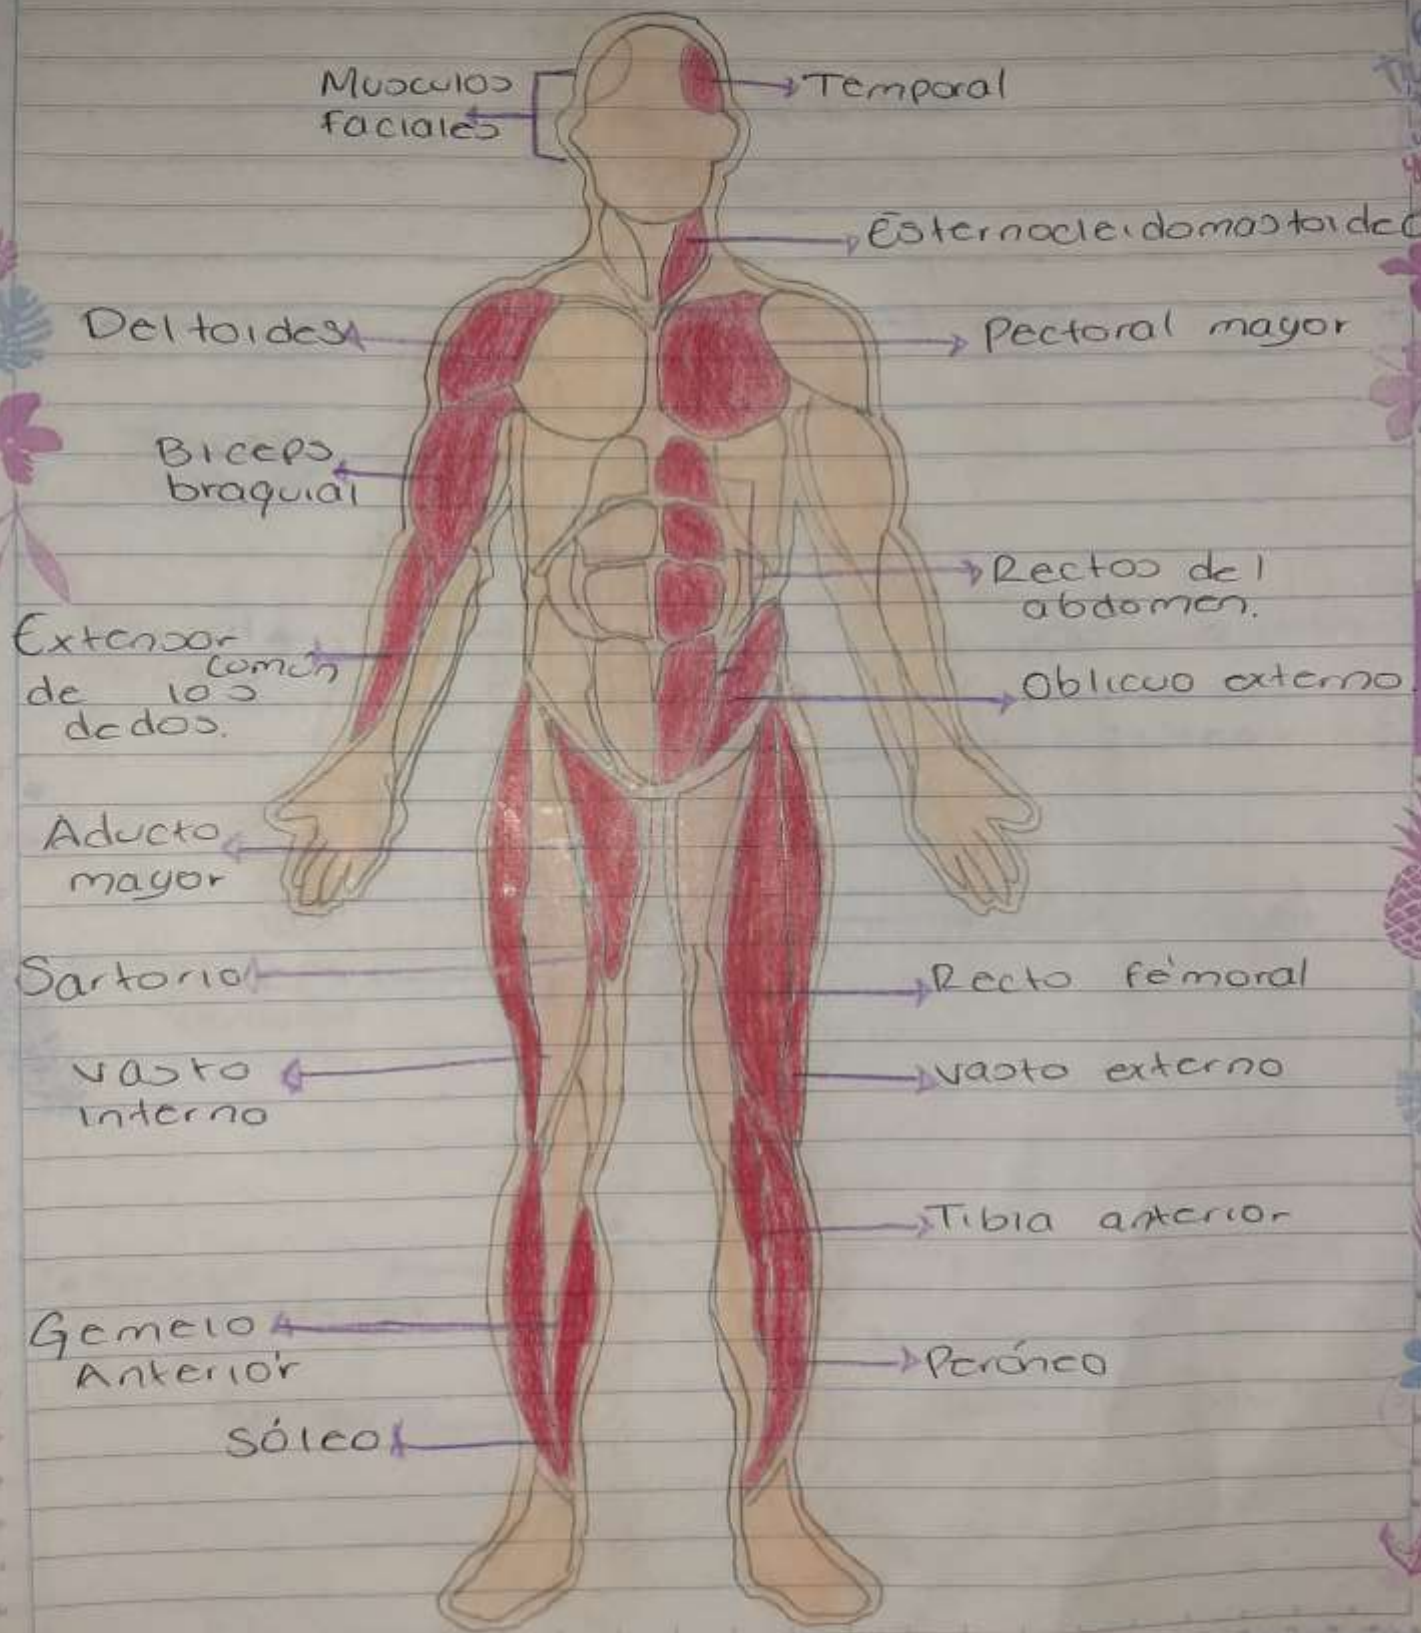 Musculos
faciales
Temporal
Esternocleidomastoideo
Deltoides
Pectoral mayor
Biceps
braquial
Rectos del
abdomen.
Extensor
común
de los
dedos.
Oblicuo externo
Aducto
mayor
Sartorio
Recto fémoral
vasto
interno
vasto externo
Tibia anterior
Gemelo
Anteriór
Peróneo
sóleo